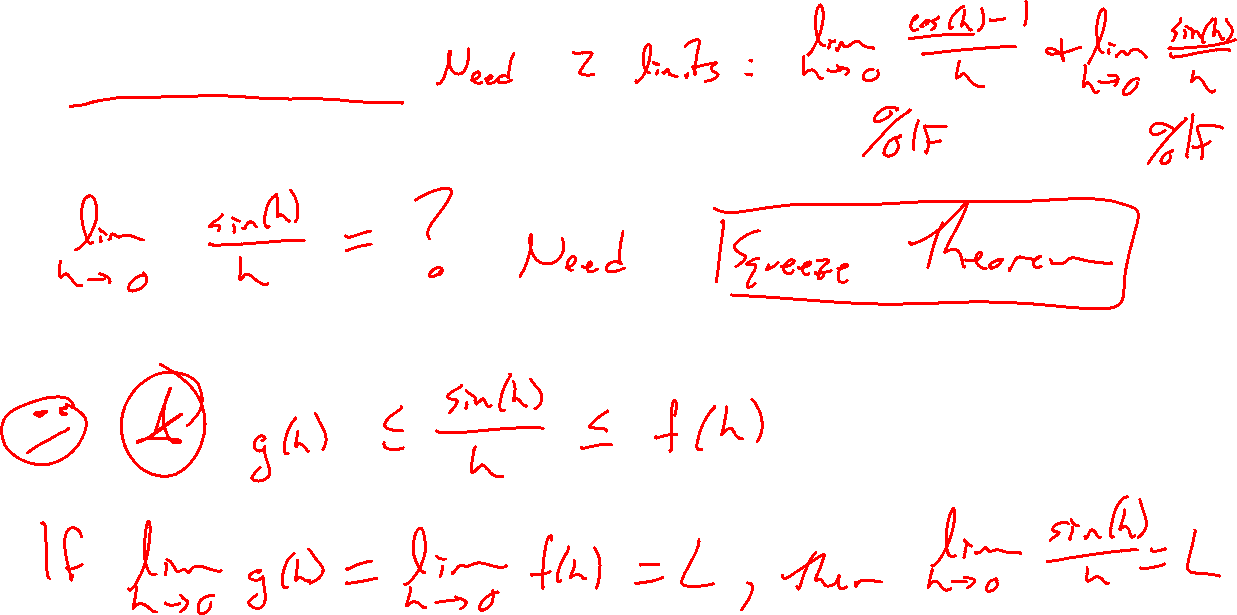 Need 2 limits: lim h→0 (cos(h)-1)/h + lim h→0 sin(h)/h
0/0 IF 0/0 IF
lim h→0 sin(h)/h = ? Need Squeeze Theorem
g(h) ≤ sin(h)/h ≤ f(h)
If lim h→0 g(h) = lim h→0 f(h) = L, then lim h→0 sin(h)/h = L